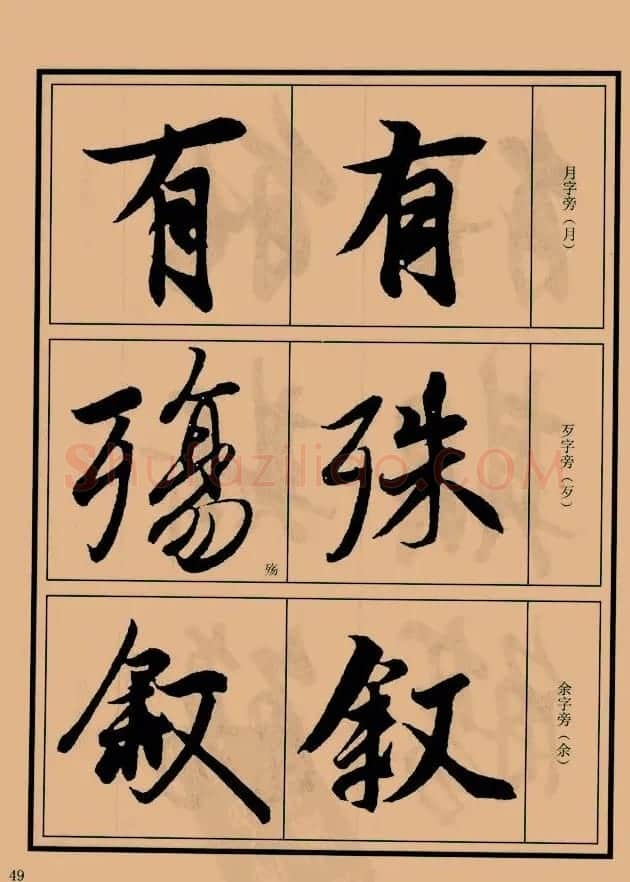 月字旁（月）
有
有
歹字旁（歹）
殊
殤
殇
余字旁（余）
叙
叙
49
Shufaziliao.COM